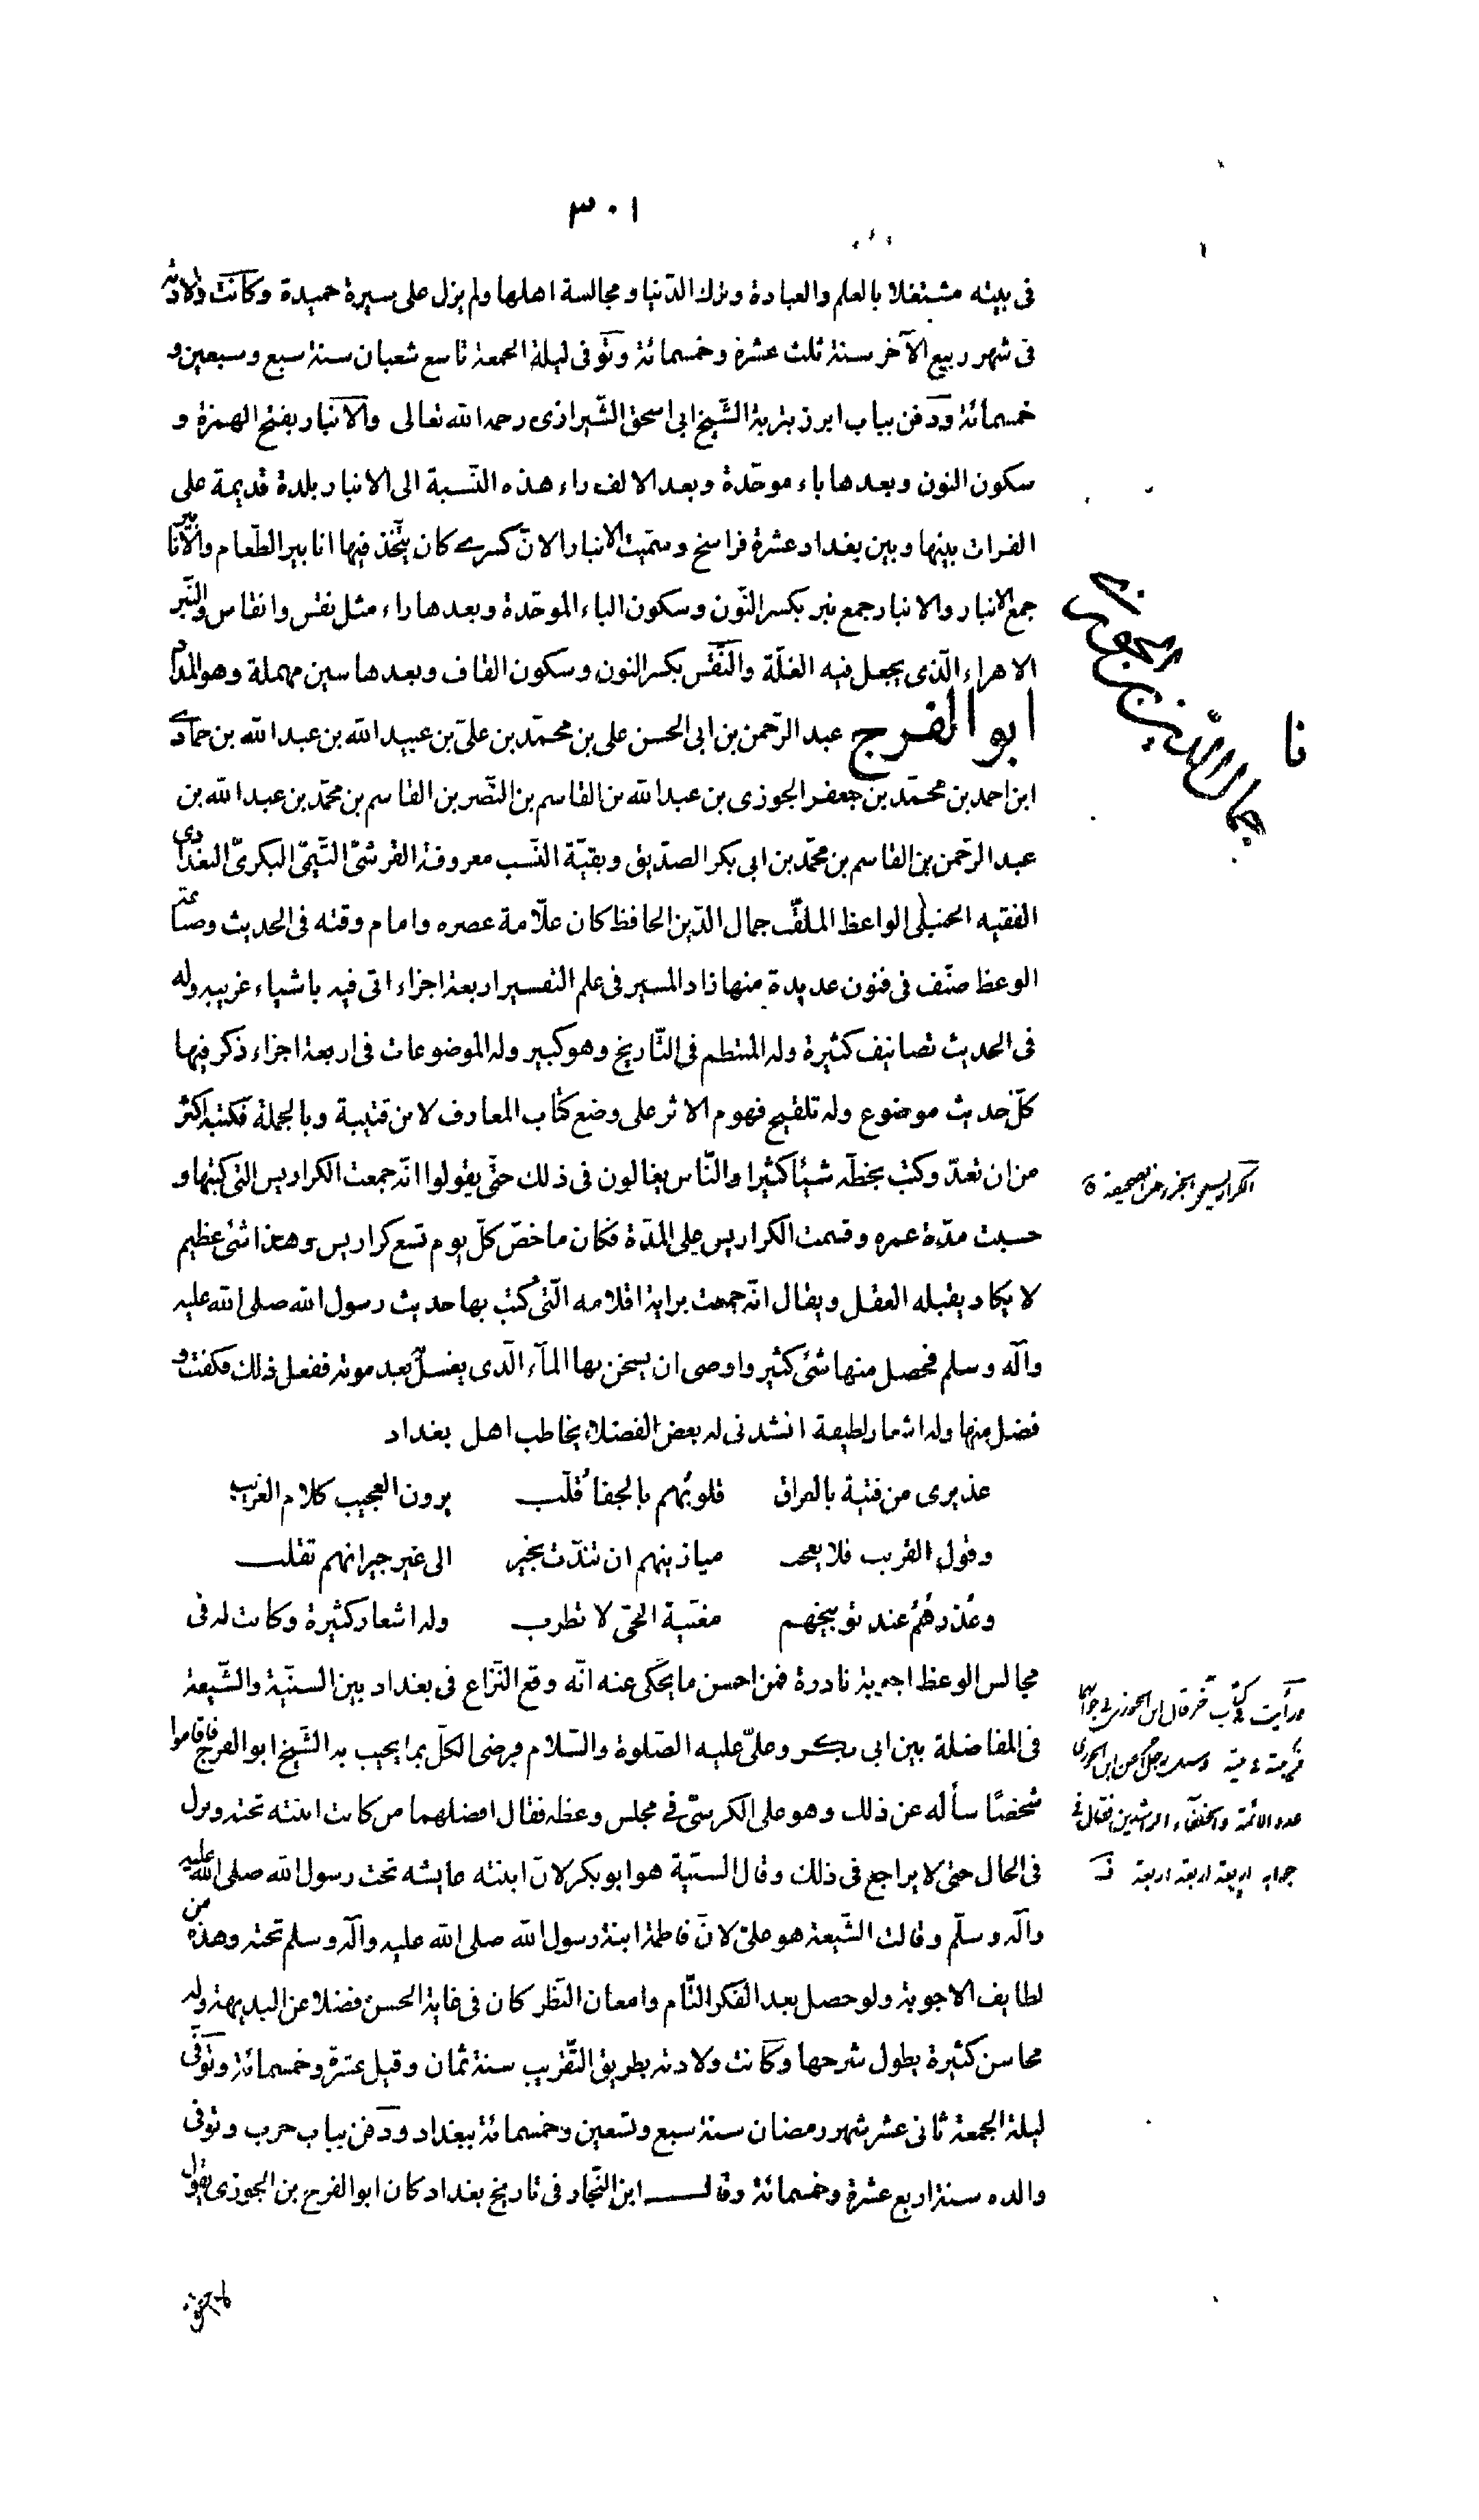 ٣٠١
فى بيته مشتغلا بالعلم والعبادة وترك الدّنيا ومجالسة اهلها ولم يزل على سيرة حميدة وكانت ولادته
فى شهر ربيع الآخر سنة ثلث عشرة وخمسمائة وتوفى ليلة الجمعة تاسع شعبان سنة سبع وسبعين و
خمسمائة ودفن بباب ابرز بتربة الشّيخ ابى اسحق الشّيرازى رحمه الله تعالى والانبار بفتح الهمزة و
سكون النون وبعدها باء موحّدة وبعد الالف راء هذه النّسبة الى الانبار بلدة قديمة على
الفرات بينها وبين بغداد عشرة فراسخ وسمّيت الانبار لانّ كسرى كان يتّخذ فيها انابير الطّعام والانابير
جمع الانبار والانبار جمع نبر بكسر النّون وسكون الباء الموحّدة وبعدها راء مثل نقس وانقاس والنّبر
الاهراء الّذى يجعل فيه الغلّة والنّقس بكسر النون وسكون القاف وبعدها سين مهملة وهو المداد
ابو الفرج عبد الرّحمن بن ابى الحسن على بن محمّد بن علىّ بن عبيد الله بن عبد الله بن حمّادى
ابن احمد بن محمّد بن جعفر الجوزى بن عبد الله بن القاسم بن النّضر بن القاسم بن محمّد بن عبد الله بن
عبد الرّحمن بن القاسم بن محمّد بن ابى بكر الصدّيق وبقيّة النّسب معروفة القرشىّ التّيمىّ البكرىّ البغدادى
الفقيه الحنبلى الواعظ الملقّب جمال الدّين الحافظ كان علّامة عصره وامام وقته فى الحديث وصناعة
الوعظ صنّف فى فنون عديدة منها زاد المسير فى علم التفسير اربعة اجزاء اتى فيه باشياء غريبه وله
فى الحديث تصانيف كثيرة وله المنتظم فى التّاريخ وهو كبير وله الموضوعات فى اربعة اجزاء ذكر فيها
كلّ حديث موضوع وله تلقيح فهوم الاثر على وضع كتاب المعارف لابن قتيبة وبالجملة فكتبه اكثر
من ان تعدّ وكتب بخطّه شيئا كثيرا والنّاس يغالون فى ذلك حتّى يقولوا انّه جمعت الكراريس التى كتبها و
حسبت مدّة عمره وقسمت الكراريس على المدّة فكان ما خصّ كلّ يوم تسع كراريس وهذا شئ عظيم
لا يكاد يقبله العقل ويقال انّه جمعت براية اقلامه الّتى كتب بها حديث رسول الله صلى الله عليه
وآله وسلم فحصل منها شئ كثير واوصى ان يسخن بها المآء الّذى يغسل به بعد موته ففعل ذلك فكفت و
فضل منها وله اشعار لطيفة انشدنى له بعض الفضلاء يخاطب اهل بغداد
عذيرى من فتية بالعراق قلوبهم بالجفا قلّب يرون العجيب كلام الغريب
وقول القريب فلا يعجب ميازيبهم ان تندّت بخير الى غير جيرانهم تقلب
وعذرهم عند توبيخهم مغنّية الحىّ لا تطرب وله اشعار كثيرة وكانت له فى
مجالس الوعظ اجوبة نادرة فمن احسن ما يحكى عنه انّه وقع النّزاع فى بغداد بين السنّية والشّيعة
فى المفاضلة بين ابى بكر وعلىّ عليه الصّلوة والسّلام فرضى الكلّ بما يجيب به الشّيخ ابو الفرج فاقاموا
شخصًا سأله عن ذلك وهو على الكرسىّ فى مجلس وعظه فقال افضلهما من كانت ابنته تحته ونزل
فى الحال حتى لا يراجع فى ذلك وقال السنّية هو ابو بكر لانّ ابنته عايشه تحت رسول الله صلى الله عليه
وآله وسلّم وقالت الشّيعة هو علىّ لانّ فاطمة ابنة رسول الله صلى الله عليه وآله وسلم تحته وهذه من
لطايف الاجوبة ولو حصل بعد الفكر التّام وامعان النّظر كان فى غاية الحسن فضلا عن البديهة وله
محاسن كثيرة يطول شرحها وكانت ولادته بطريق التّقريب سنة ثمان وقيل عشرة وخمسمائة وتوفّى
ليلة الجمعة ثانى عشر شهر رمضان سنة سبع وتسعين وخمسمائة ببغداد ودفن بباب حرب وتوفى
والده سنة اربع عشرة وخمسمائة وقال ابن النّجار فى تاريخ بغداد كان ابو الفرج بن الجوزى يقول
جمال الدّين بن الجوزى
ورأيت كتاب آخر قال ابن الجوزى
عدد الائمة والخلفاء الراشدين فقال فى
جوابه اربعة اربعة اربعة